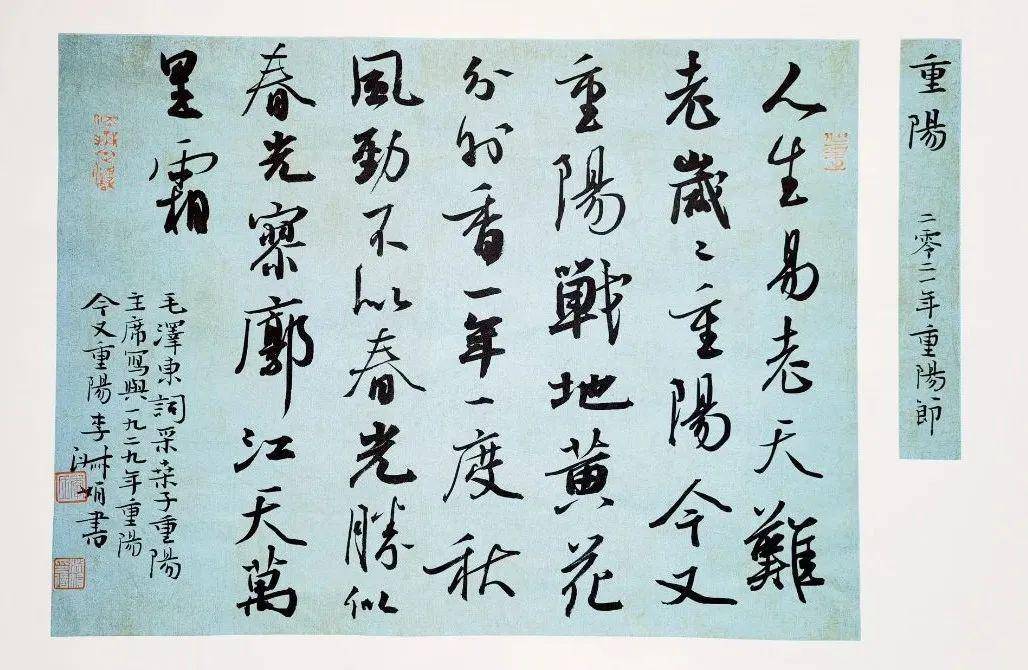 重陽
二零二一年重陽節
人生易老天難
老歲〻重陽今又
重陽戰地黃花
分外香一年一度秋
風勁不似春光勝似
春光寥廓江天萬
里霜
毛澤東詞采桑子重陽
主席寫與一九二九年重陽
今又重陽李娟書